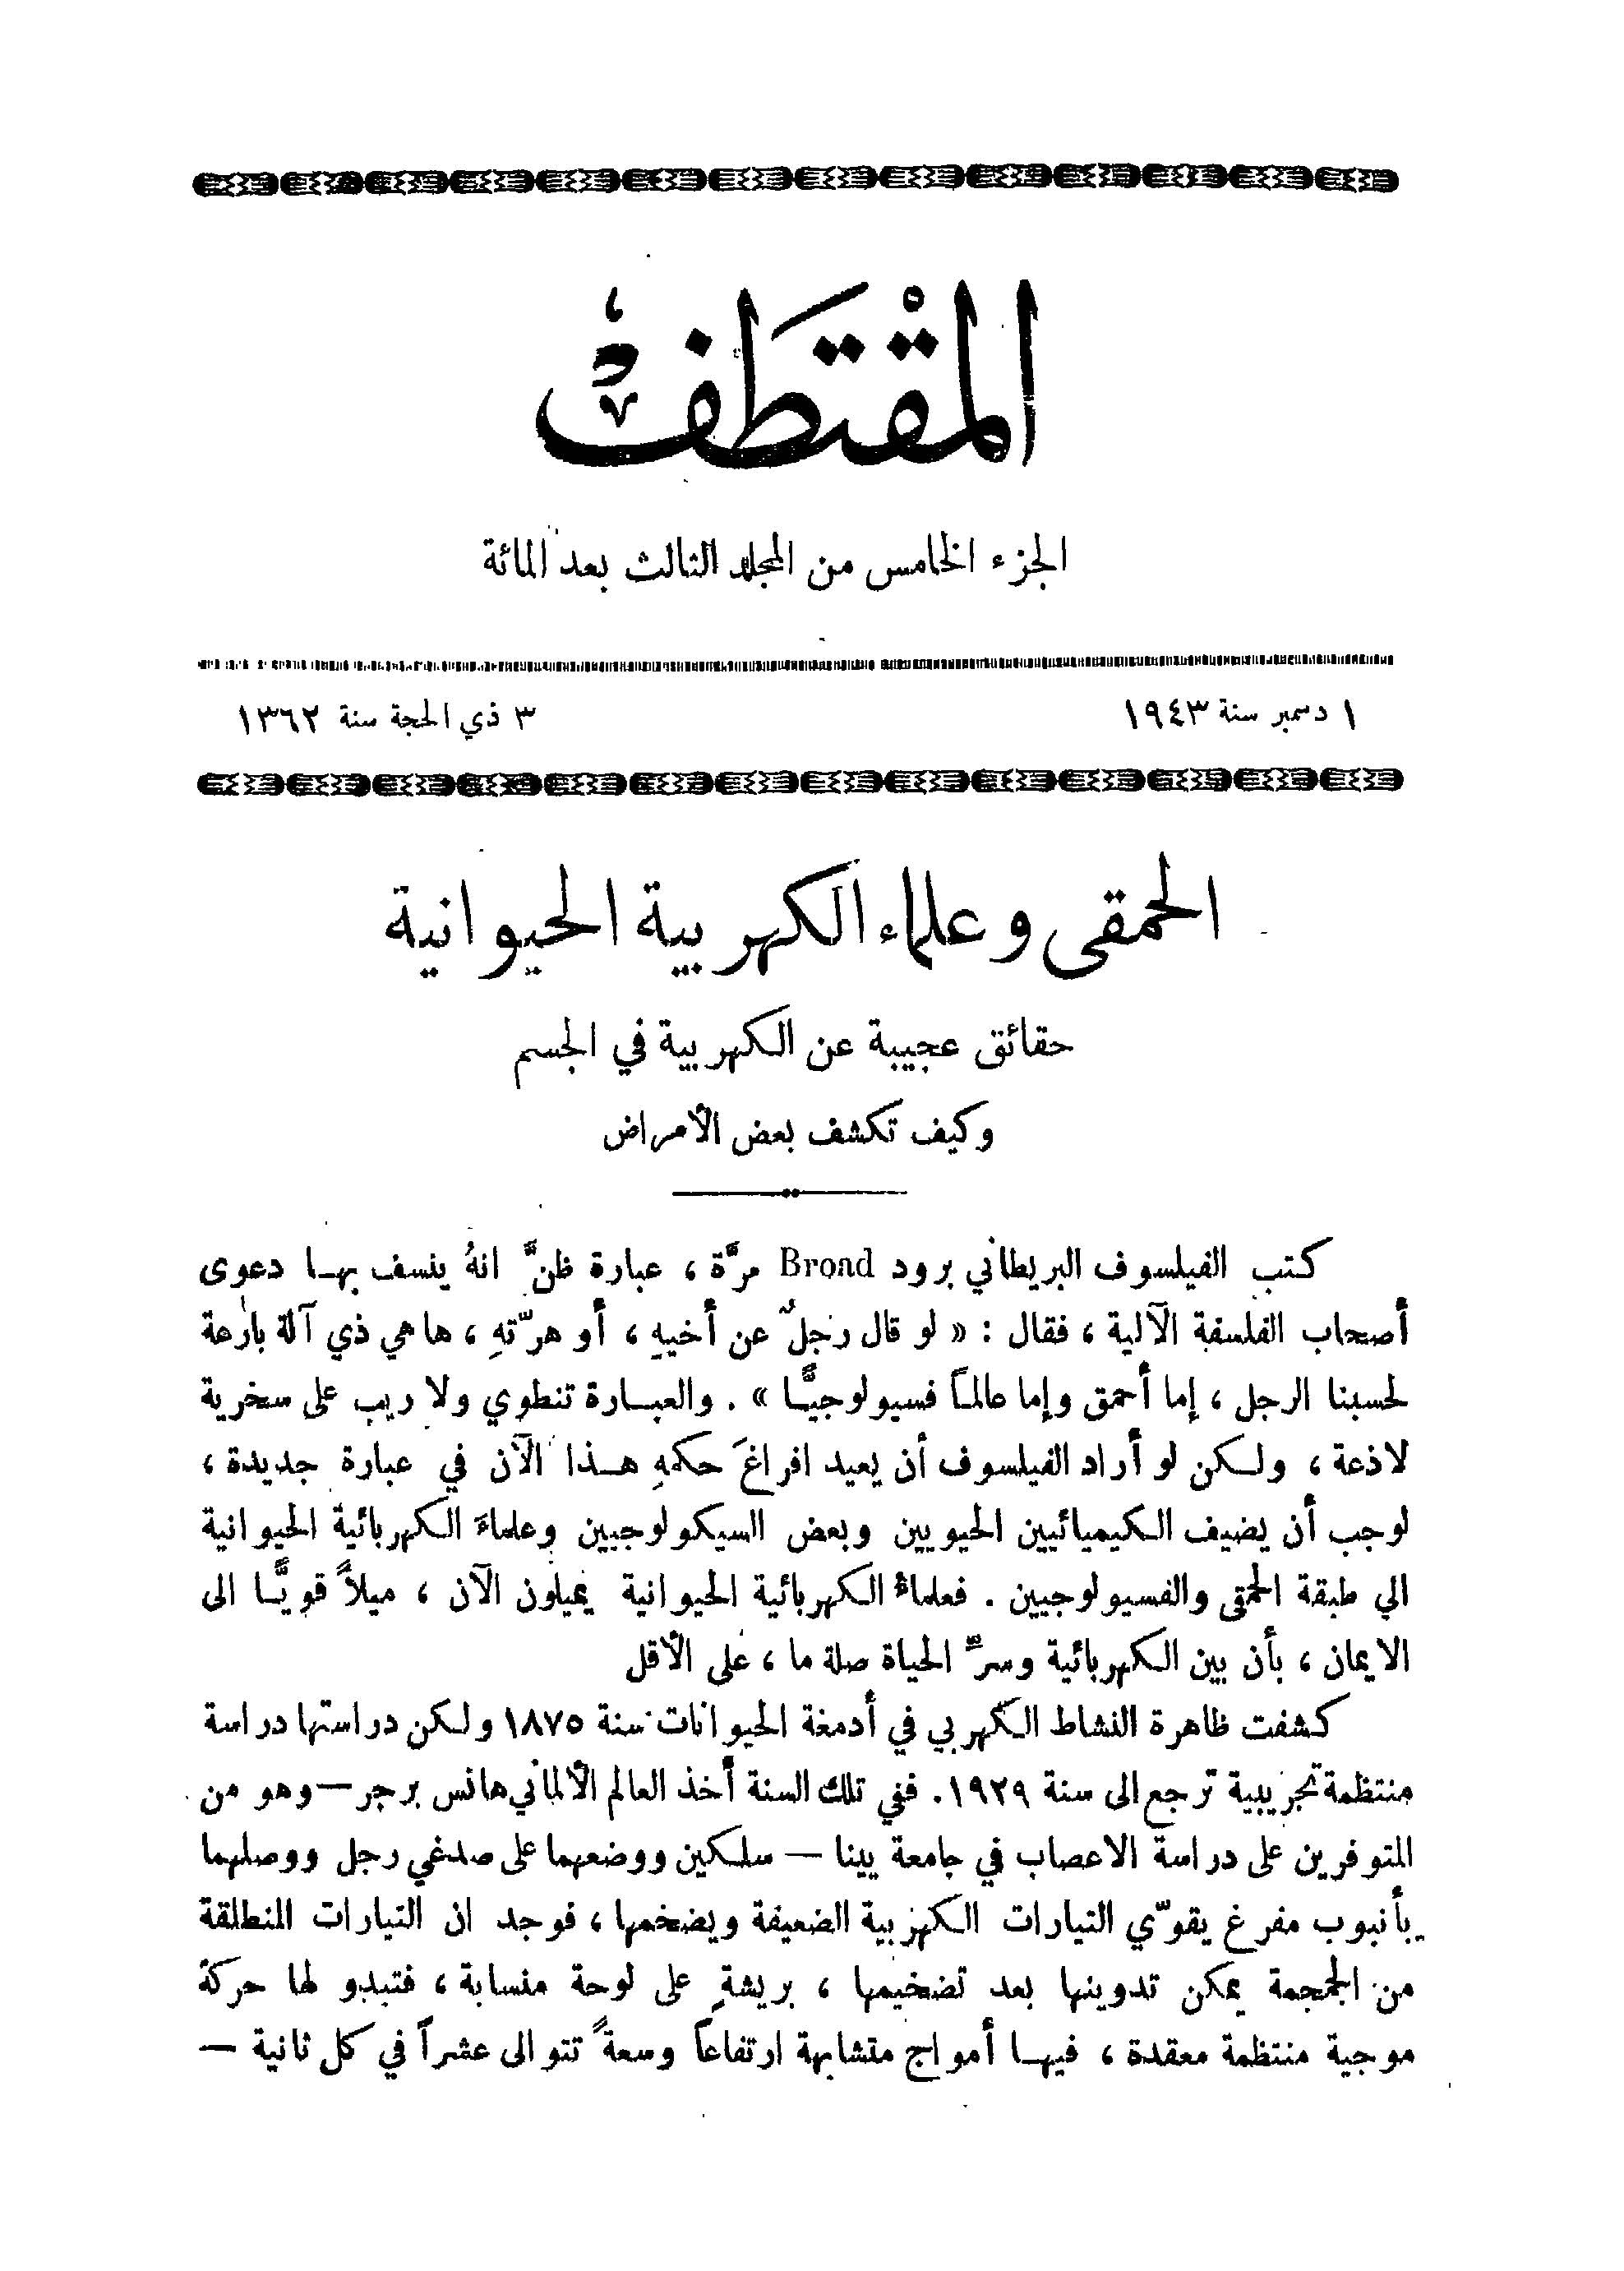 المقْتَطَفُ
الجزء الخامس من المجلد الثالث بعد المائة
١ دسمبر سنة ١٩٤٣
٣ ذي الحجة سنة ١٣٦٢
الحمقى وعلماء الكهربية الحيوانية
حقائق عجيبة عن الكهربية في الجسم
وكيف تكشف بعض الأمراض
كتب الفيلسوف البريطاني برود Broad مرَّة ، عبارة ظنَّ انهُ ينسف بها دعوى
أصحاب الفلسفة الآلية ، فقال : « لو قال رجلٌ عن أخيهِ ، أو هرّتهِ ، ها هي ذي آلة بارعة
لحسبنا الرجل ، إما أحمق وإما عالماً فسيولوجيًّا » . والعبارة تنطوي ولا ريب على سخرية
لاذعة ، ولكن لو أراد الفيلسوف أن يعيد افراغَ حكمهِ هذا الآن في عبارة جديدة ،
لوجب أن يضيف الكيميائيين الحيويين وبعض السيكولوجيين وعلماءَ الكهربائية الحيوانية
الي طبقة الحمقى والفسيولوجيين . فعلماءُ الكهربائية الحيوانية يميلون الآن ، ميلاً قويًّا الى
الايمان ، بأن بين الكهربائية وسرِّ الحياة صلة ما ، على الأقل
كشفت ظاهرة النشاط الكهربي في أدمغة الحيوانات سنة ١٨٧٥ ولكن دراستها دراسة
منتظمة تجريبية ترجع الى سنة ١٩٢٩. ففي تلك السنة أخذ العالم الألماني هانس برجر — وهو من
المتوفرين على دراسة الاعصاب في جامعة يينا — سلكين ووضعهما على صدغي رجل ووصلهما
بأنبوب مفرغ يقوّي التيارات الكهربية الضعيفة ويضخمها ، فوجد ان التيارات المنطلقة
من الجمجمة يمكن تدوينها بعد تضخيمها ، بريشةٍ على لوحة منسابة ، فتبدو لها حركة
موجية منتظمة معقدة ، فيها أمواج متشابهة ارتفاعاً وسعةً تتوالى عشراً في كل ثانية —